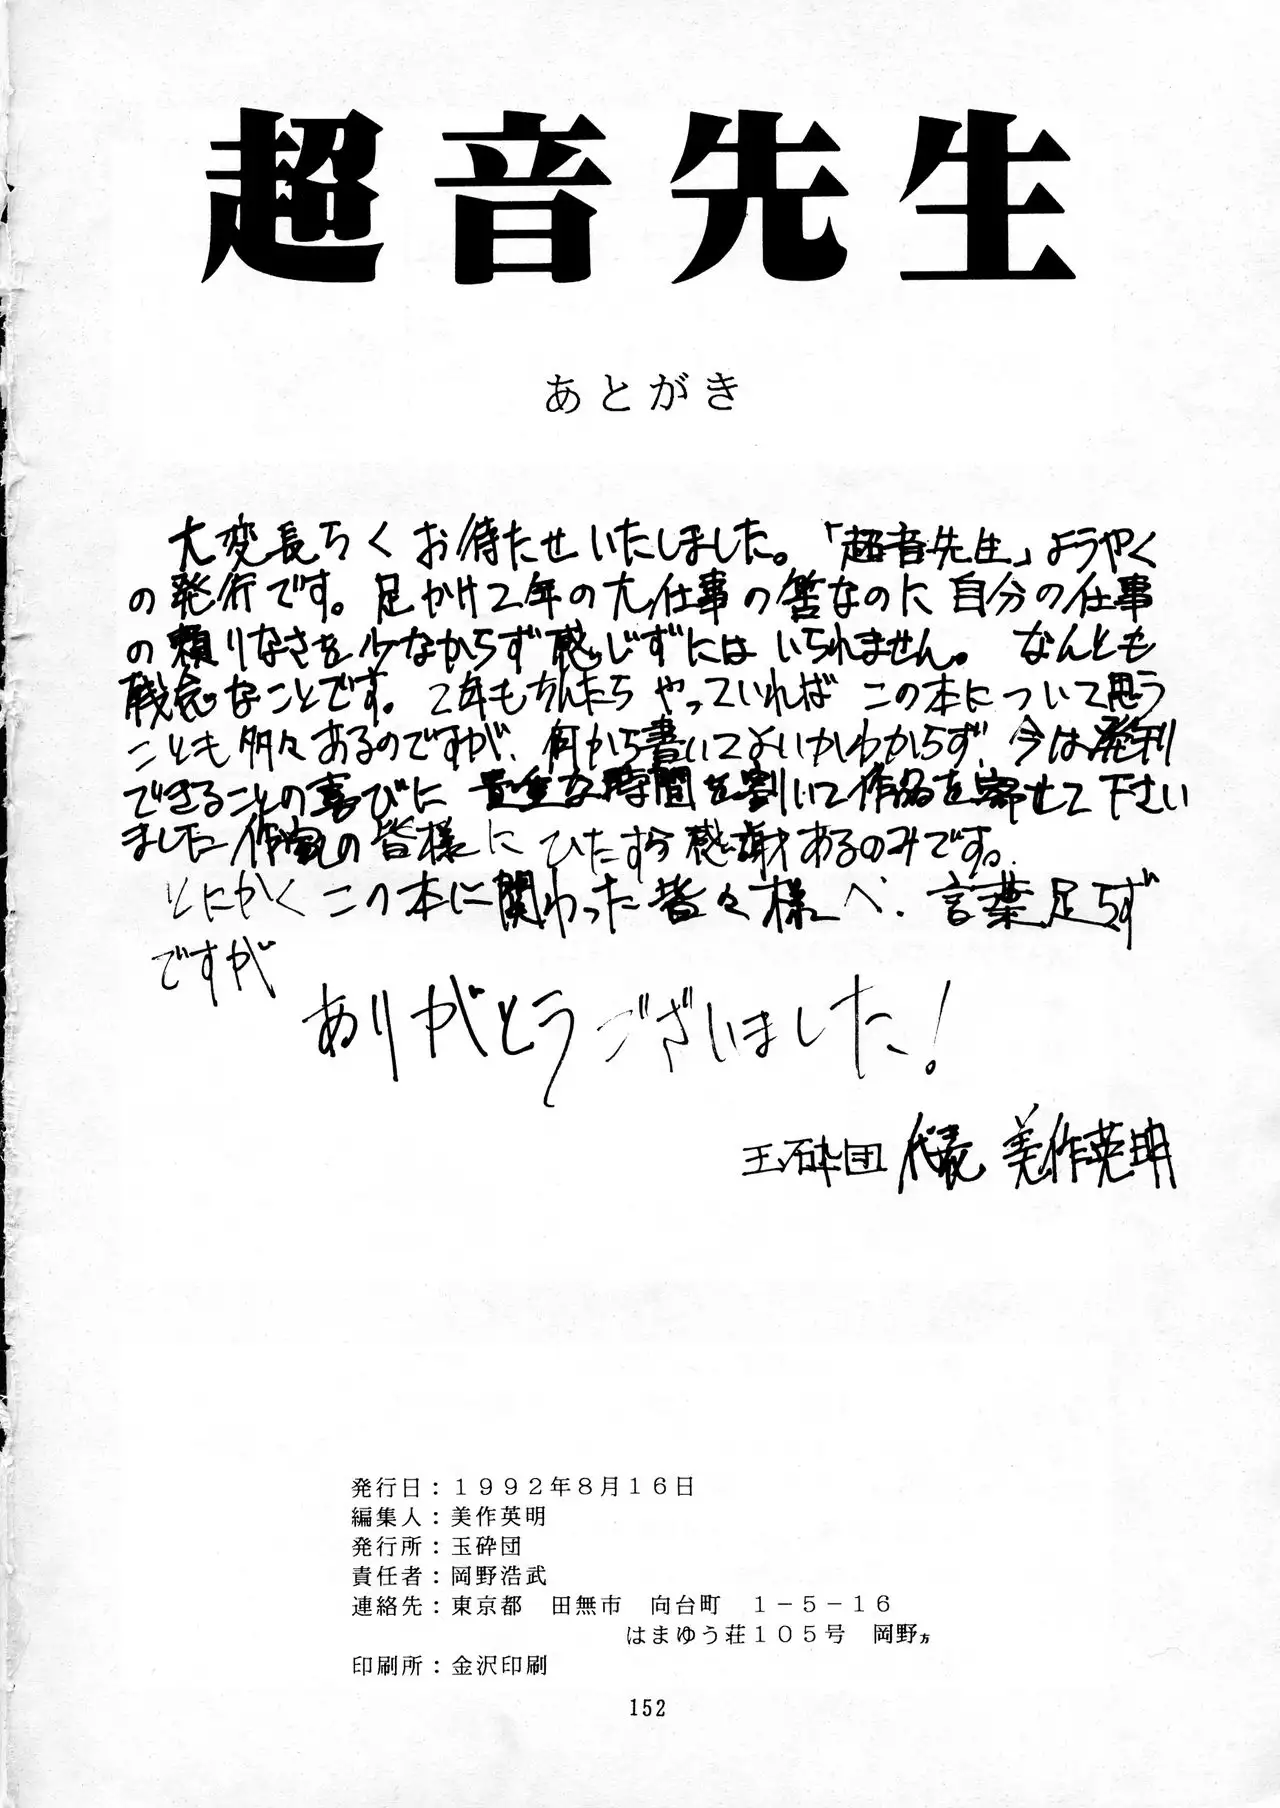 超音先生
あとがき
大変長らくお待たせいたしました。「超音先生」ようやく
の発行です。足かけ2年の大仕事の筈なのに自分の仕事
の頼りなさを少なからず感じずにはいられません。なんとも
残念なことです。2年もちんたらやっていれば この本について思う
ことも多々あるのですが、何から書いてよいかわからず、今は発刊
できることの喜びに 貴重な時間を割いて作品を寄せて下さい
ました作家の皆様に ひたすら感謝あるのみです。
とにかく この本に関わった皆々様へ、言葉足らず
ですが
ありがとうございました!
玉砕団 代表 美作英明
発行日:1992年8月16日
編集人:美作英明
発行所:玉砕団
責任者:岡野浩武
連絡先:東京都 田無市 向台町 1-5-16
はまゆう荘105号 岡野方
印刷所:金沢印刷
152